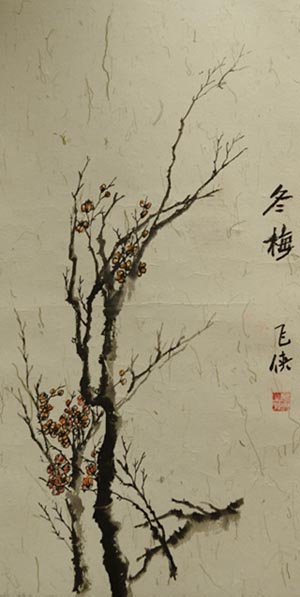 冬梅
飞侠